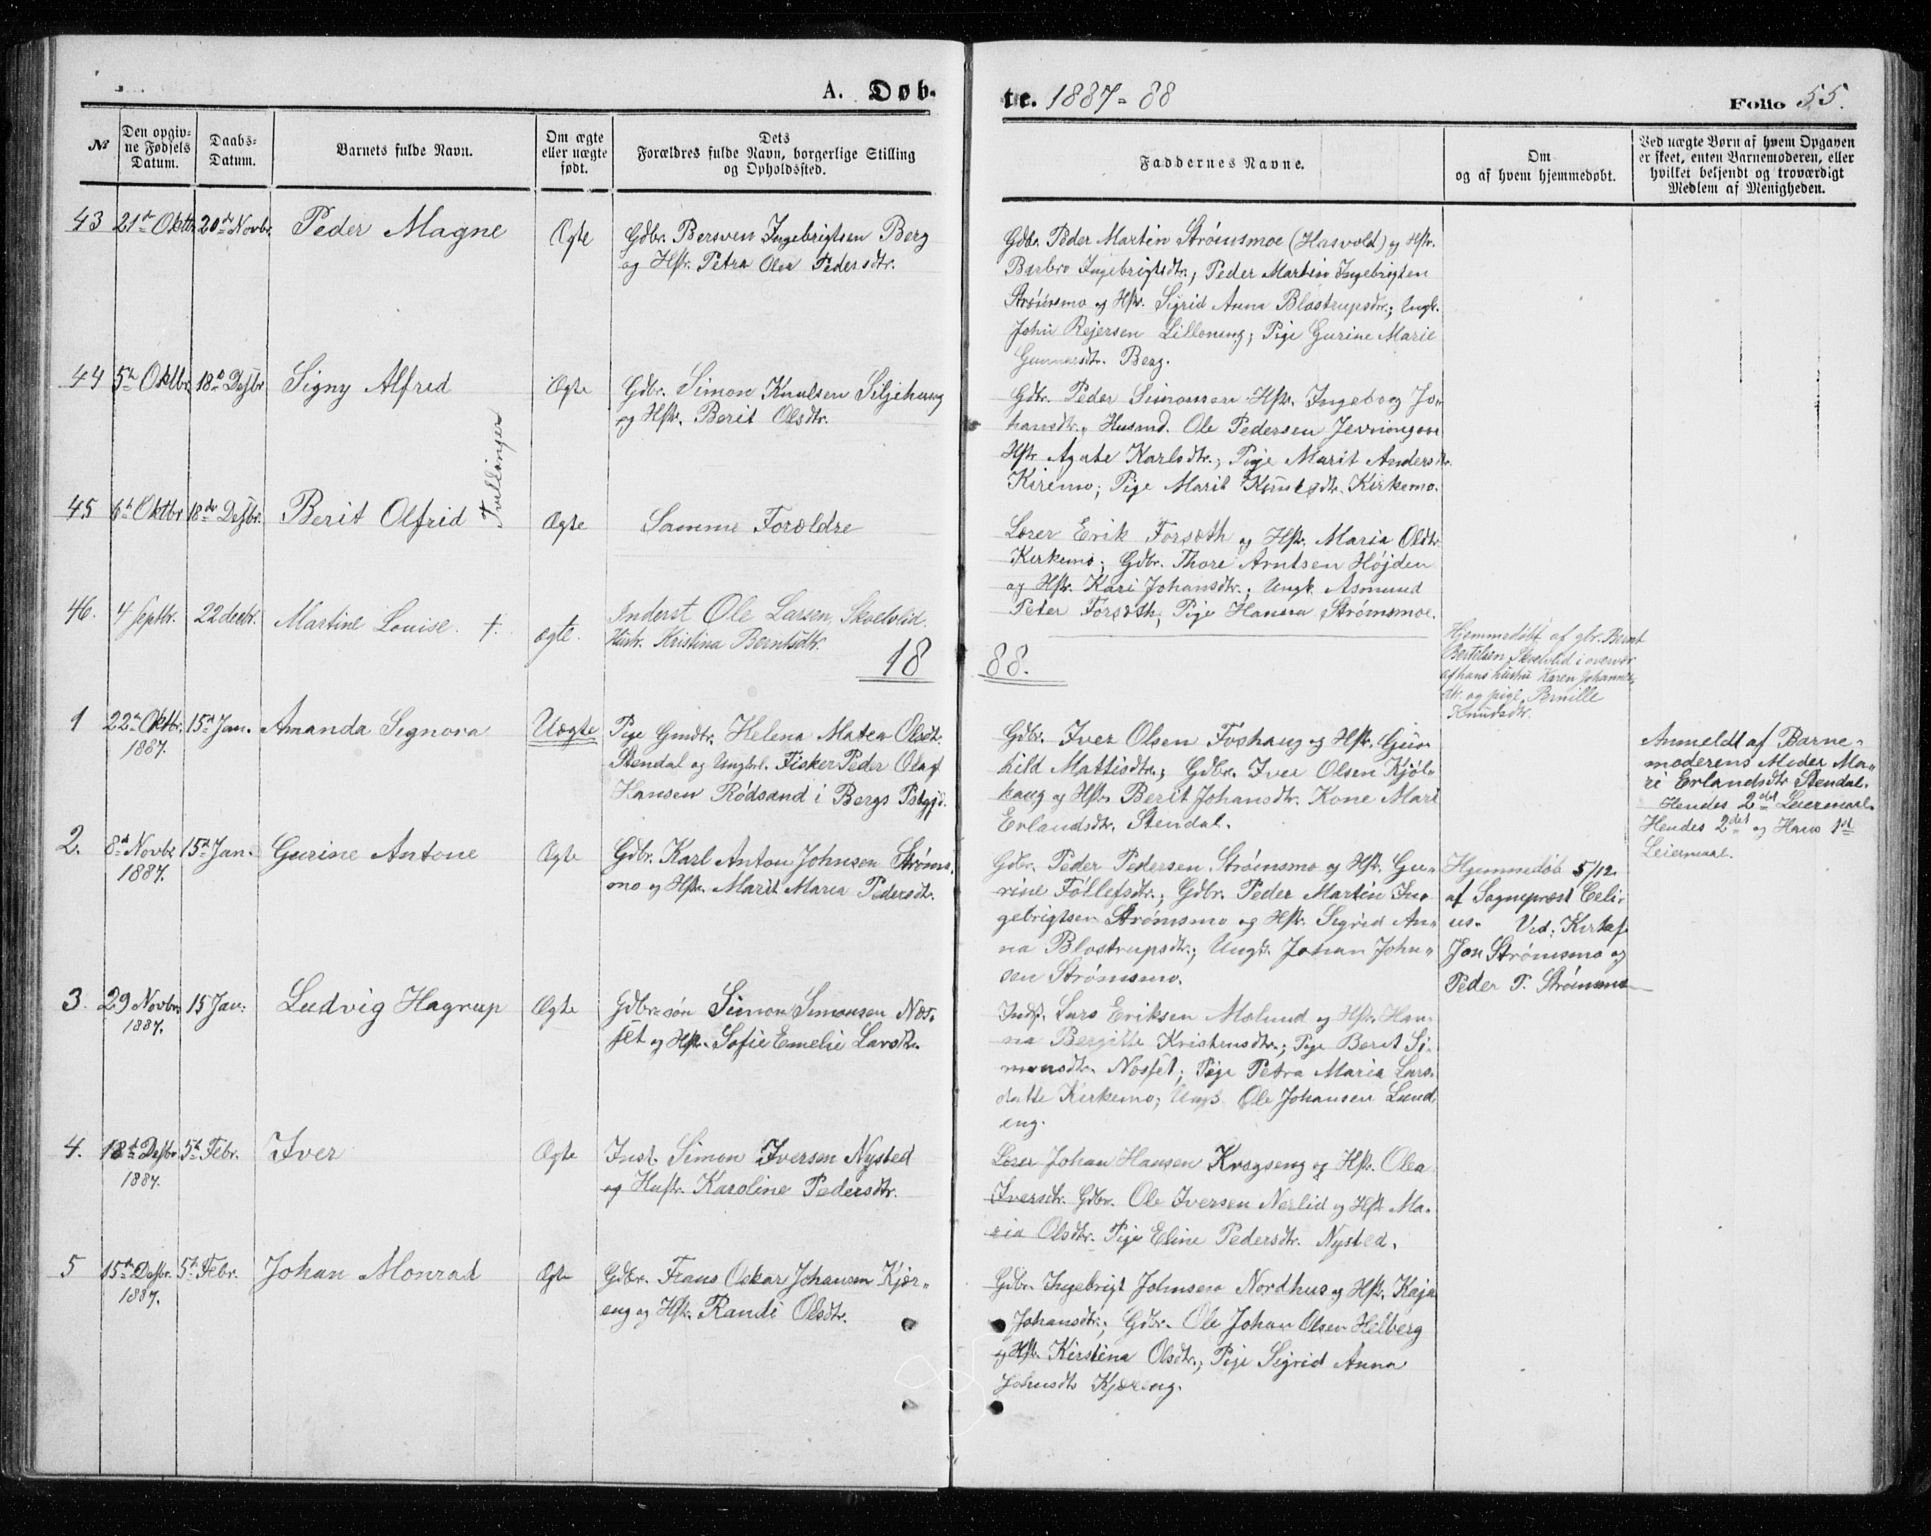 A. Døb-
te. 1887-88
Folio 55.
№
Den opgiv-
ne Fødsels
Datum.
Daabs-
Datum.
Barnets fulde Navn.
Om ægte
eller uægte
født.
Dets
Forældres fulde Navn, borgerlige Stilling
og Opholdssted.
Faddernes Navne.
Om
og af hvem hjemmedøbt.
Ved uægte Børn af hvem Opgaven
er skeet, enten Barnemoderen, eller
hvilket bekjendt og troværdigt
Medlem af Menigheden.
43 21de Oktbr. 20de Novbr. Peder Magne Ægte
Gdbr. Bersven Ingebrigtsen Berg
og Hstr. Petra Olea Pedersdtr.
Gdbr. Peder Martin Strømsmoe (Hasvold) og Hstr.
Berbro Ingebrigtsdtr.; Peder Martin Ingebrigtsen
Strømsmo og Hstr. Sigrid Anna Blostrupsdtr.; Ungk.
John Rejersen Lilloneng; Pige Gurine Marie
Gunnarsdtr. Berg.
44 5te Oktbr. 18de Desbr. Signy Alfrid Ægte
Tvillinger
Gdbr. Simon Knutsen Siljehaug
og Hstr. Berit Olsdtr.
Gdbr. Peder Simonsen Hstr. Ingeborg Jo-
hansdtr., Husmd. Ole Pedersen
Hstr Agate Karlsdtr.; Pige Marit Andersdtr.
Kirkmo; Pige Marit Knutsdtr. Kirkemo.
45 6te Oktbr 18de Desbr. Berit Olfrid Ægte
Samme Forældre
Lærer Erik Forsæth og Hstr. Maria Olsdtr
Kirkemo; Gdbr. Thore Arntsen Højden
og Hstr. Kari Johansdtr.; Ungk. Asmund
Peter Forsæth; Pige Hanna Strømsmoe.
46. 4 Septbr. 22 decbr. Martine Louise. †. ægte.
Inderst Ole Larsen, Skoelvlid.
Hustr. Kristina Berntsdtr.
Hjemmedøbt af gbr. Bernt
Bertelsen Skoelvlid i overvær
af hans hustru Karen Johannes
dtr. og pige Pernille
Knudsdtr.
18 88.
1 22de Oktbr. 1887. 15de Jan. Amanda Signora Uægte
Pige Gmdtr. Helena Matea Olsdtr.
Stendal og Ungkl. Fisker Peder Olaf
Hansen Rødsand i Bergs Pstgj.
Gdbr. Iver Olsen Foshaug og Hstr. Gun-
hild Mattisdtr.; Gdbr. Iver Olsen Kjøl-
haug og Hstr. Berit Johansdtr. Kone Mari
Erlandsdtr. Stendal.
Anmeldt af Barne-
moderens Moder Ma-
ri Erlandsdtr Stendal.
Hendes 2det Leiermaal.
Hendes 2det og Hans 1ste
Leiermaal.
2. 8de Novbr. 1887. 15de Jan. Gurine Antone Ægte
Gdbr. Karl Anton Johnsen Strøms-
mo og Hstr. Marit Maria Pedersdtr.
Gdbr. Peder Pedersen Strømsmo og Hstr. Gu-
rine Tøllefsdtr.; Gdbr. Peder Martin In-
gebrigtsen Strømsmo og Hstr. Sigrid An-
na Blostrupsdtr.; Ungk. Johan John-
sen Strømsmo.
Hjemmedøb. 5/12.
af Sogneprest Celi-
us. Vid: Kirkesf
Jon Strømsmo og
Peder P. Strømsmo
3. 29 Novbr. 1887. 15 Jan. Ludvig Hagrup Ægte
Gdbr.søn Simon Simonsen Nos-
set og Hstr. Sofie Emelie Larsdtr.
Indst. Lars Eriksen Molund og Hstr. Han-
na Bergitte Kristensdtr.; Pige Berit Si-
monsdtr. Nosset; Pige Petra Maria Lars-
datte Kirkemo; Ungk. Ole Johansen Lund-
eng.
4. 18de Desbr 1887. 5te Febr. Iver Ægte
Inst. Simon Iversen Nysted
og Hustr. Karoline Pedersdtr.
Lærer Johan Hansen Krogseng og Hstr. Olea
Iversdtr. Gdbr. Ole Iversen Nerlid og Hstr. Ma-
ria Olsdtr. Pige Eline Pedersdtr. Nysted.
5 15de Desbr. 1887. 5te Febr. Johan Monrad Ægte
Gdbr. Frans Oskar Johansen Kjær-
eng og Hstr. Randi Olsdtr.
Gdbr. Ingebrigt Johnsen Nordhus og Hstr. Kaja
Johansdtr.; Gdbr. Ole Johan Olsen Helberg
og Hstr. Kirstina Olsdtr.; Pige Sigrid Anna
Johnsdtr Kjæreng.